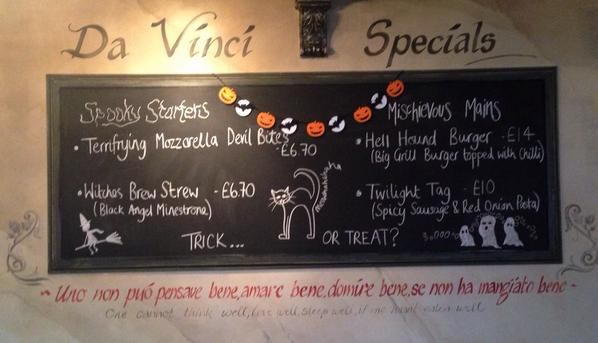 Da Vinci Specials
Spooky Starters
• Terrifrying Mozzarella Devil Bites
-£6.70
• Witches Brew Strew - £6.70
(Black Angel Minestrone)
Mischievous Mains
• Hell Hound Burger - £14
(Big Grill Burger topped with Chilli)
• Twilight Tag - £10
(Spicy Sausage & Red Onion Pasta)
TRICK... OR TREAT?
~ Uno non può pensave bene, amare bene, domire bene, se non ha mangiato bene ~
One cannot think well, love well, sleep well, if one hasn't eaten well